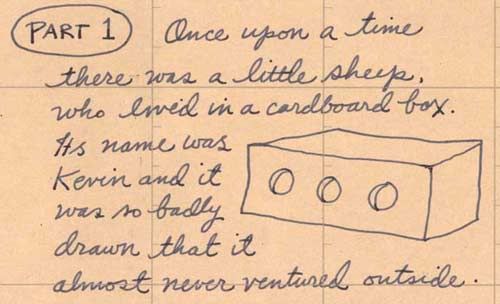 PART 1 Once upon a time
there was a little sheep,
who lived in a cardboard box.
Its name was
Kevin and it
was so badly
drawn that it
almost never ventured outside.